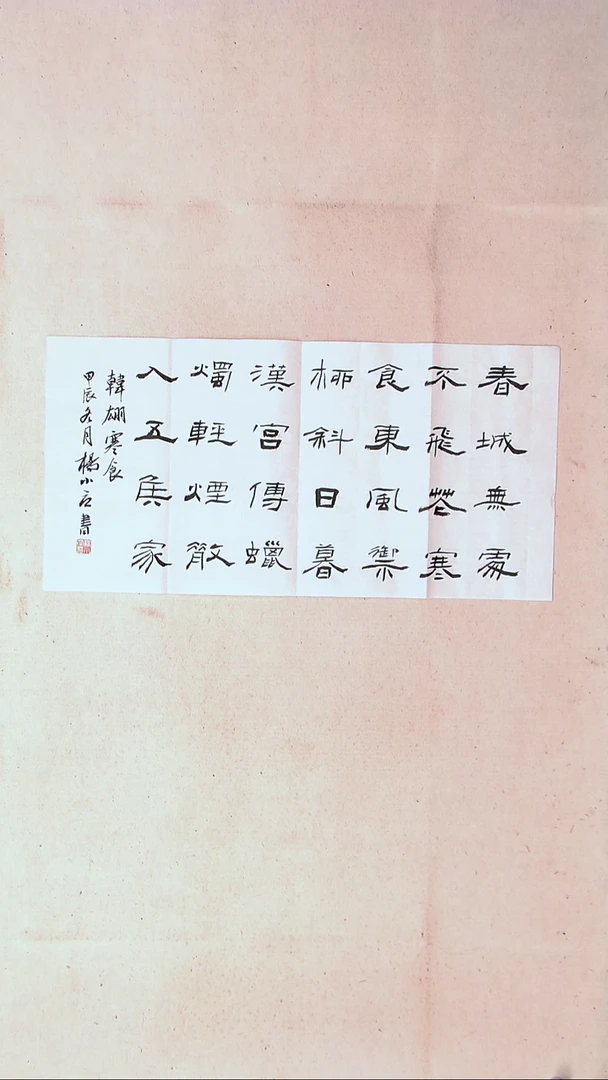 春城無處
不飛花寒
食東風禦
柳斜日暮
漢宮傳蠟
燭輕煙散
入五侯家
韓翃寒食
甲辰冬月楊小立書